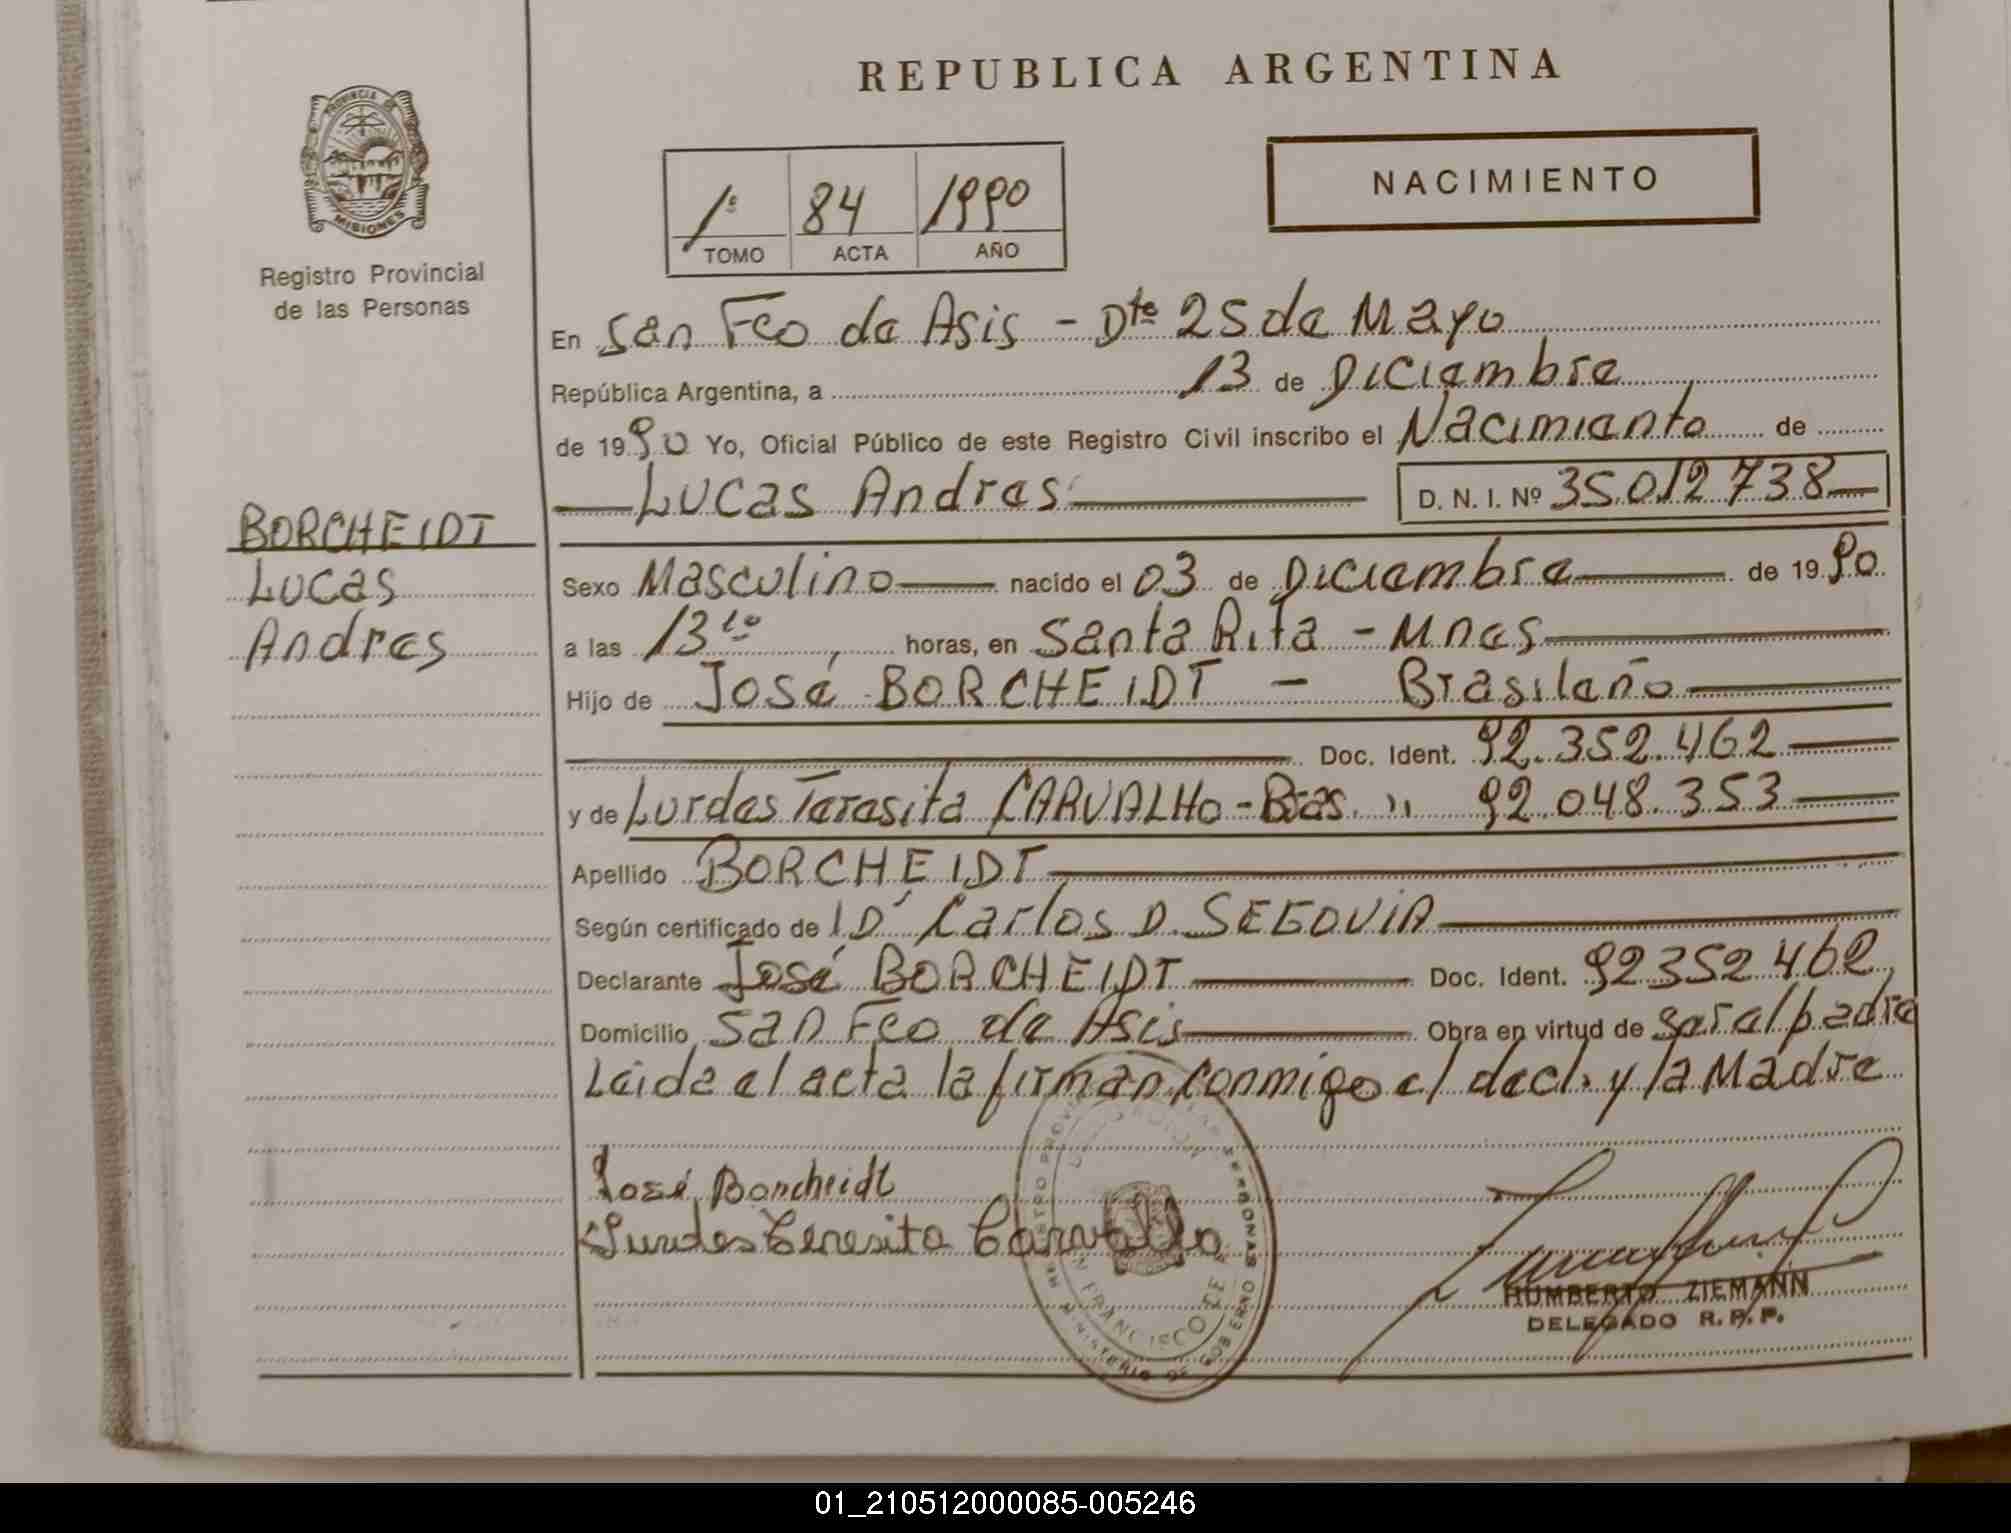 REPUBLICA ARGENTINA
PROVINCIA DE
MISIONES
Registro Provincial
de las Personas
1º 84 1990
TOMO ACTA AÑO
NACIMIENTO
En San Fco de Asis - Dte 25 de Mayo
República Argentina, a 13 de Diciembre
de 1990 Yo, Oficial Público de este Registro Civil inscribo el Nacimiento de
Lucas Andres D. N. I. Nº 35.012.738
BORCHEIDT
Lucas
Andres
Sexo Masculino nacido el 03 de Diciembre de 1990
a las 13 10, horas, en Santa Rita - Mnes
Hijo de José BORCHEIDT - Brasileño
Doc. Ident. 92.352.462
y de Lurdes Teresita CARVALHO - Bras. " 92.048.353
Apellido BORCHEIDT
Según certificado de Carlos D. SEGOVIA
Declarante José BORCHEIDT Doc. Ident. 92352462
Domicilio San Fco de Asis Obra en virtud de ser el padre
Leida el acta la firman conmigo el decl. y la Madre
José Borcheidt
Lurdes Teresita Carvalho
HUMBERTO ZIEMANN
DELEGADO R.P.P.
MINISTERIO DE GOBIERNO
01_210512000085-005246